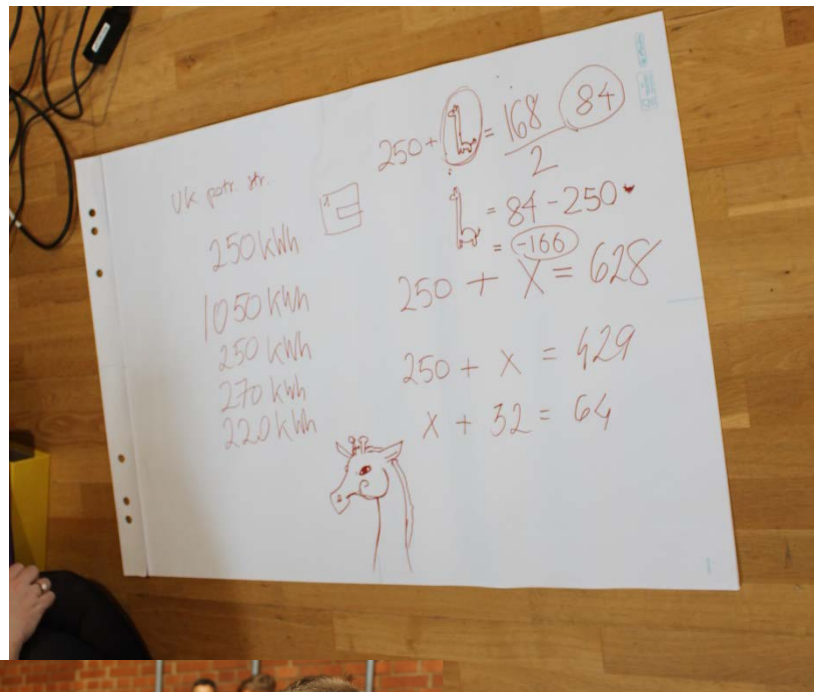 Uk potr. str.
250 kWh
1050 kWh
250 kWh
270 kWh
220 kWh
250 + = 168 84
2
= 84 - 250
= -166
250 + X = 628
250 + x = 429
x + 32 = 64